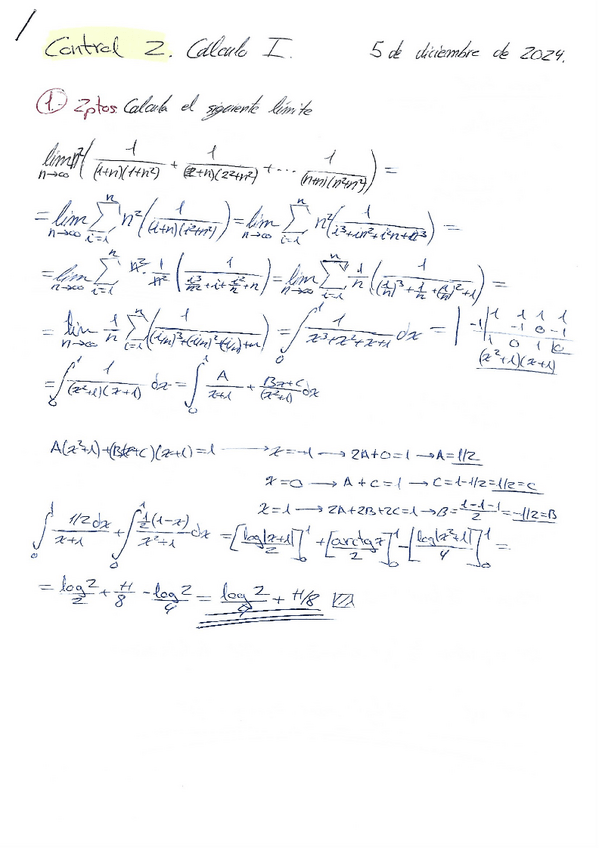 Control 2. Calculo I. 5 de diciembre de 2024.
1. 2ptos. Calcula el siguiente límite
lim n→∞ n² ( 1/((1+n)(1+n²)) + 1/((2+n)(2²+n²)) + ... 1/((n+n)(n²+n²)) ) =
= lim n→∞ Σ i=1 n n² ( 1/((i+n)(i²+n²)) ) = lim n→∞ Σ i=1 n n² ( 1/(i³+in²+i²n+n³) ) =
= lim n→∞ Σ i=1 n n² · 1/n² ( 1/(i³/n²+i+i²/n+n) ) = lim n→∞ Σ i=1 n 1/n ( 1/((i/n)³+i/n+(i/n)²+1) ) =
= lim n→∞ 1/n Σ i=1 n ( 1/((i/n)³+(i/n)²+(i/n)+1) ) = ∫₀¹ 1/(x³+x²+x+1) dx = | -1 | 1 1 1 1
-1 0 -1
1 0 1 |0
(x²+1)(x+1)
= ∫₀¹ 1/((x²+1)(x+1)) dx = ∫₀¹ A/(x+1) + (Bx+C)/(x²+1) dx
A(x²+1)+(Bx+C)(x+1)=1 → x=-1 → 2A+0=1 → A=1/2
x=0 → A+C=1 → C=1-1/2=1/2=C
x=1 → 2A+2B+2C=1 → B=(1-1-1)/2=-1/2=B
∫₀¹ (1/2 dx)/(x+1) + ∫₀¹ (1/2(1-x))/(x²+1) dx = [log|x+1|/2]₀¹ + [arctgx/2]₀¹ - [log|x²+1|/4]₀¹ =
= log2/2 + π/8 - log2/4 = log2/4 + π/8